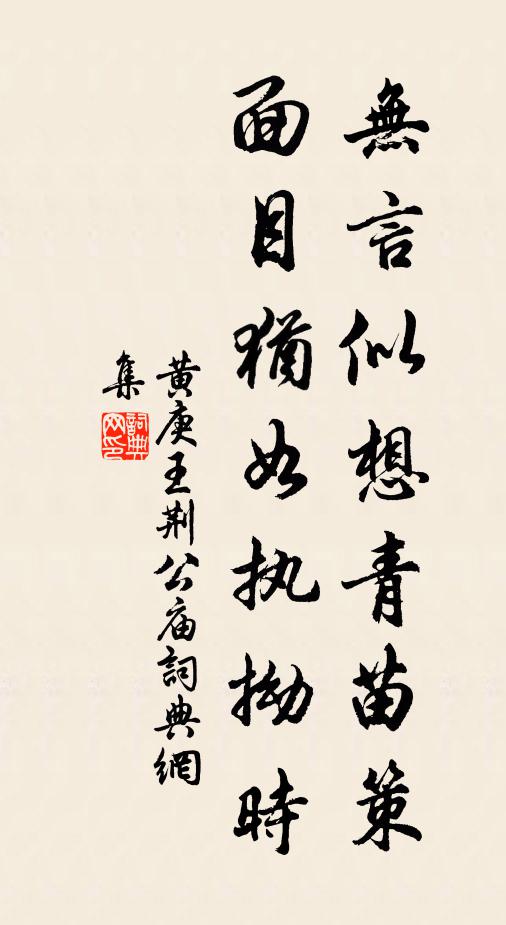 無言似想青苗策
面目猶如执拗時
黄庚王荆公庙詞典網
集
詞典
网印